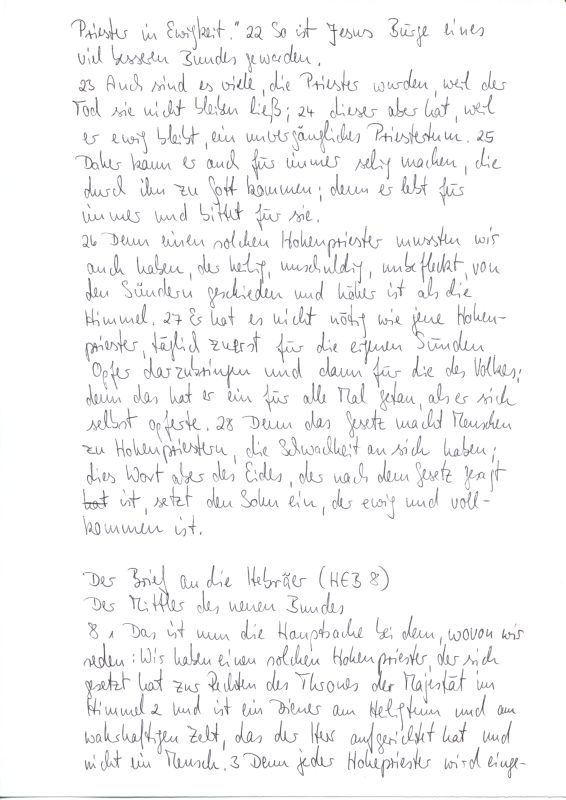 Priester in Ewigkeit." 22 So ist Jesus Bürge eines
viel besseren Bundes geworden.
23 Auch sind es viele, die Priester wurden, weil der
Tod sie nicht bleiben ließ; 24 dieser aber hat, weil
er ewig bleibt, ein unvergängliches Priestertum. 25
Daher kann er auch für immer selig machen, die
durch ihn zu Gott kommen; denn er lebt für
immer und bittet für sie.
26 Denn einen solchen Hohenpriester mussten wir
auch haben, der heilig, unschuldig, unbefleckt, von
den Sündern geschieden und höher ist als die
Himmel. 27 Er hat es nicht nötig wie jene Hohen-
priester, täglich zuerst für die eigenen Sünden
Opfer darzubringen und dann für die des Volkes;
denn das hat er ein für alle Mal getan, als er sich
selbst opferte. 28 Denn das Gesetz macht Menschen
zu Hohenpriestern, die Schwachheit an sich haben;
dies Wort aber des Eides, der nach dem Gesetz gesagt
hat ist, setzt den Sohn ein, der ewig und voll-
kommen ist.
Der Brief an die Hebräer (HEB 8)
Der Mittler des neuen Bundes
8 1 Das ist nun die Hauptsache bei dem, wovon wir
reden: Wir haben einen solchen Hohenpriester, der sich
gesetzt hat zur Rechten des Thrones der Majestät im
Himmel 2 und ist ein Diener am Heiligtum und am
wahrhaftigen Zelt, das der Herr aufgerichtet hat und
nicht ein Mensch. 3 Denn jeder Hohepriester wird einge-